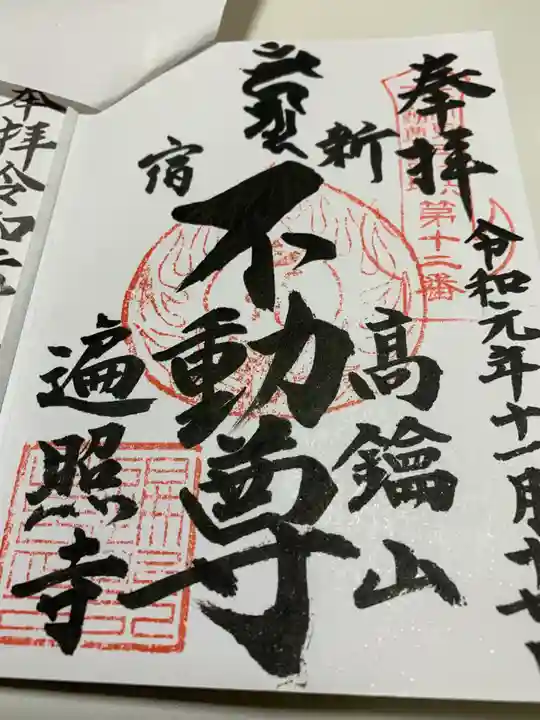 奉拝
第十二番
令和元年十一月十七
新
高鑰山
不動尊
宿
遍照寺
本拝令和元